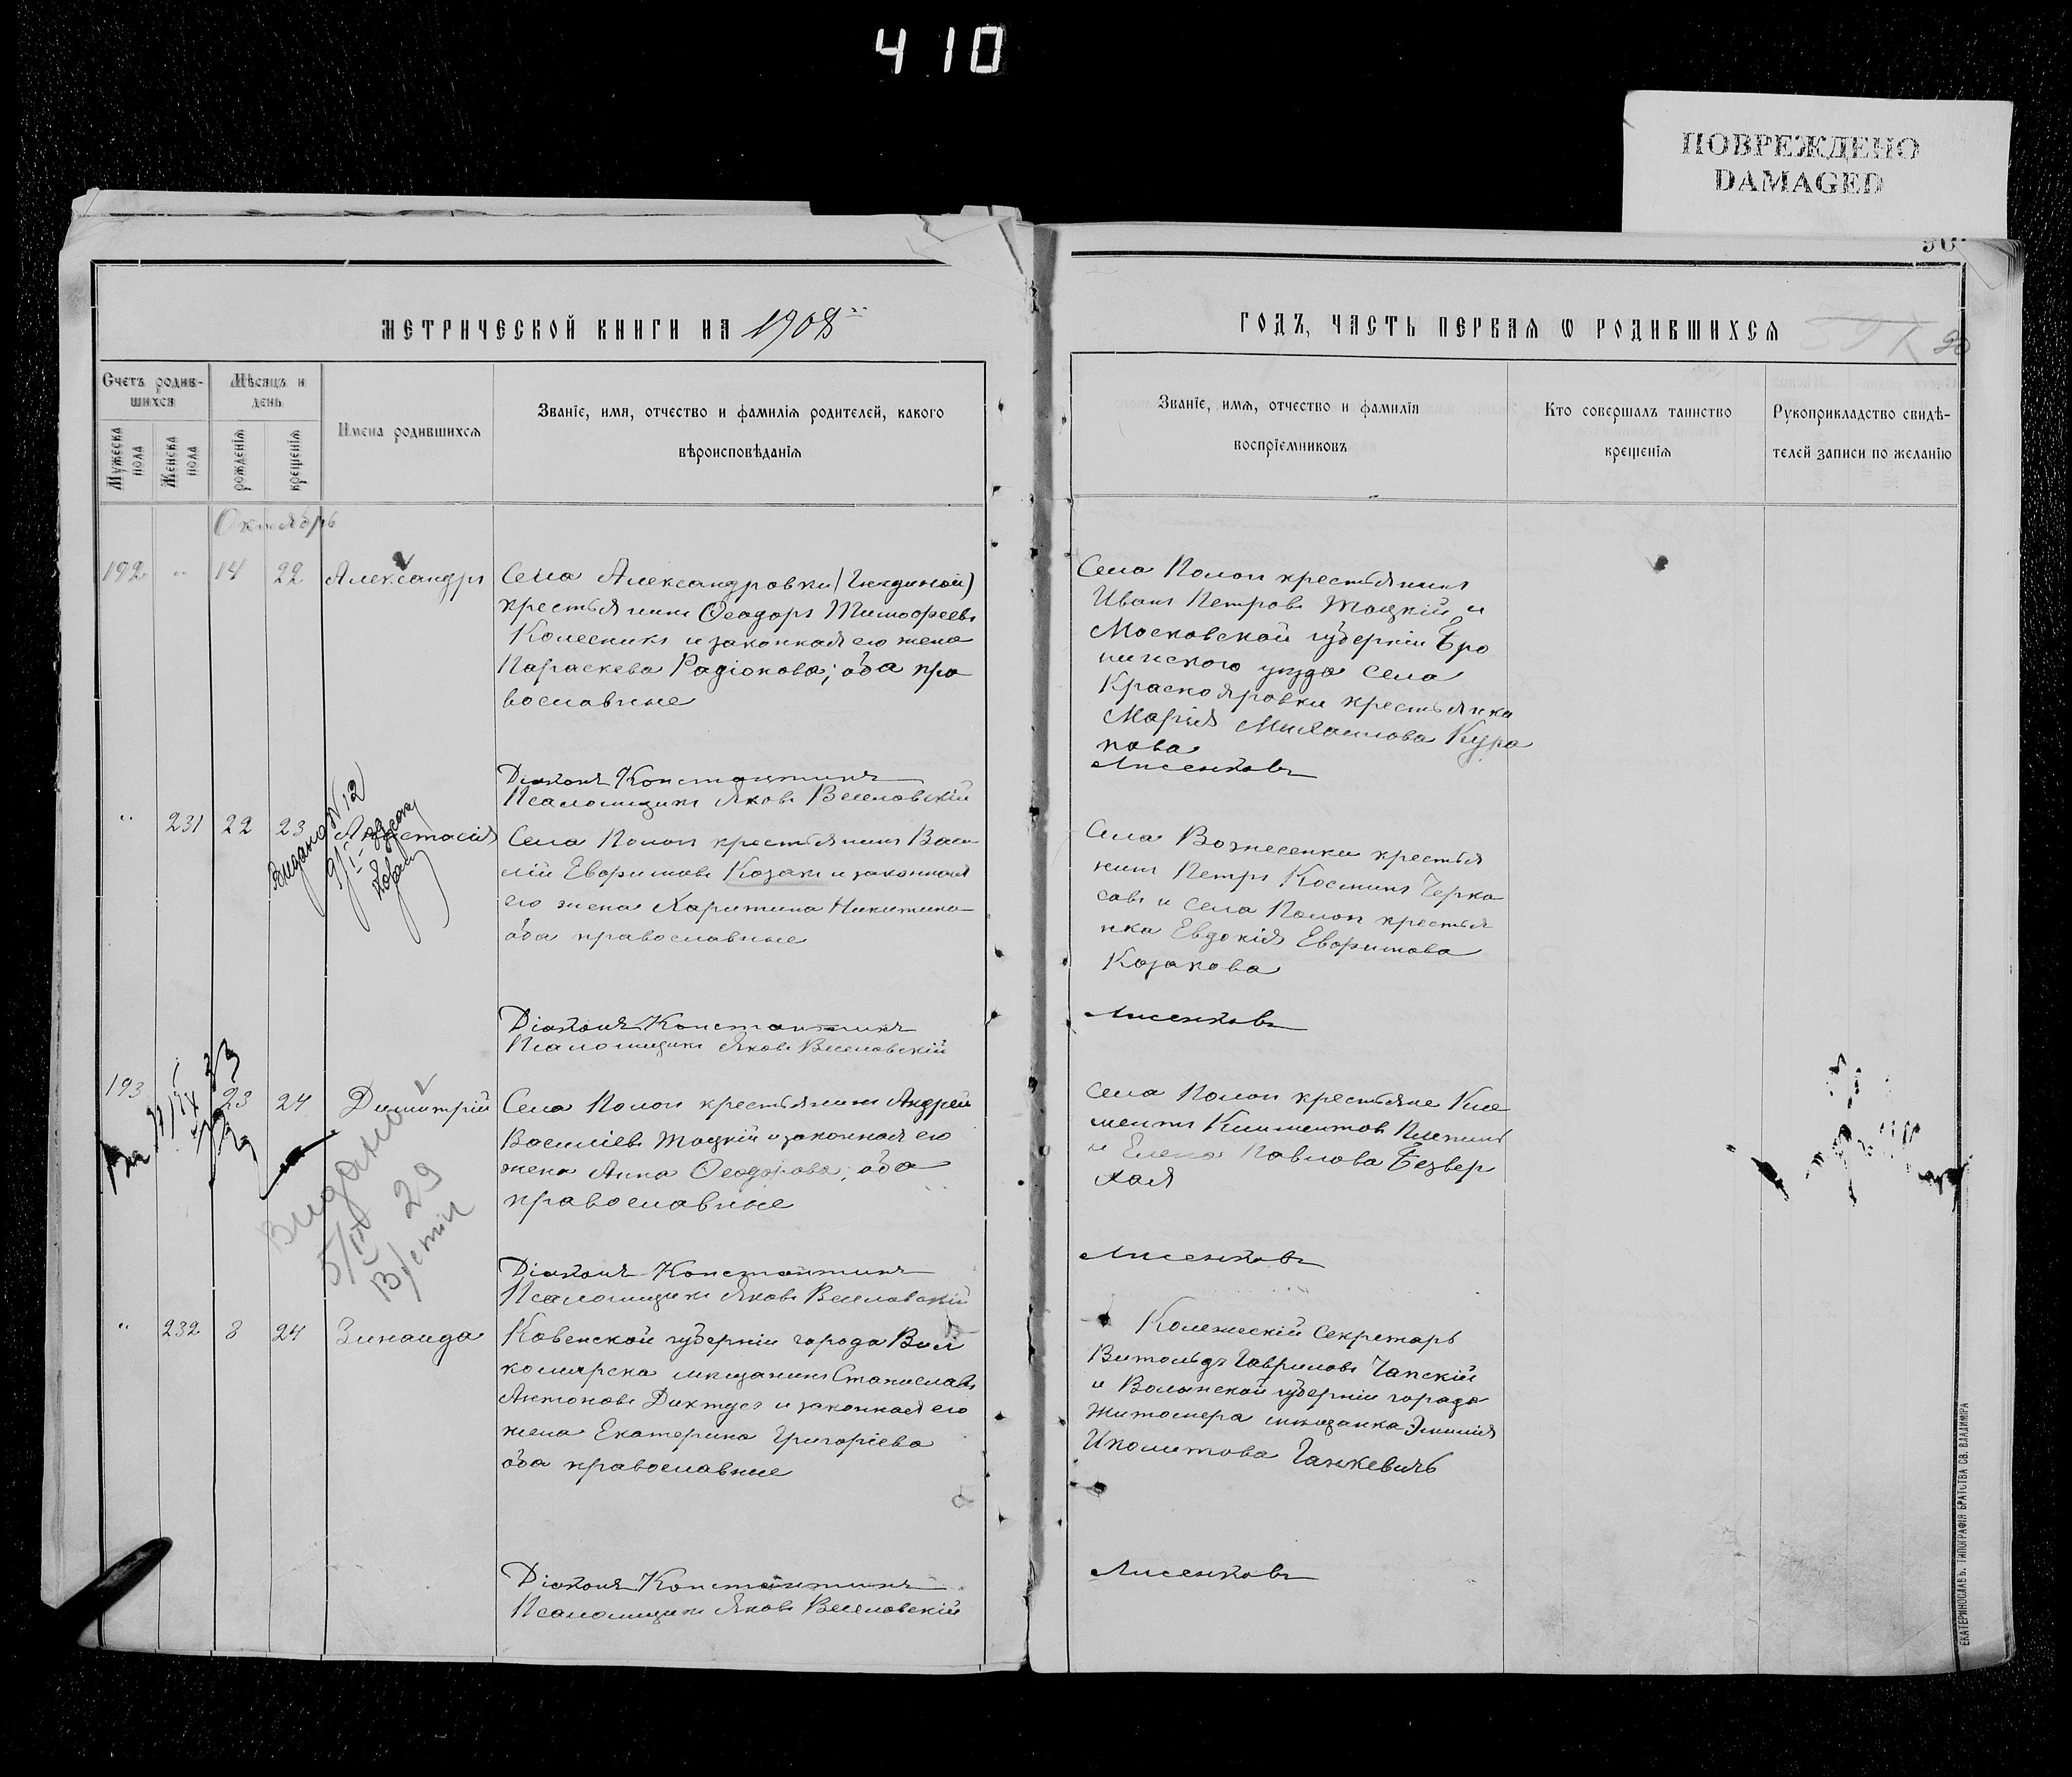 410
ПОВРЕЖДЕНО
DAMAGED
МЕТРИЧЕСКОЙ КНИГИ НА 1908
ГОДЪ, ЧАСТЬ ПЕРВАЯ Ѡ РОДИВШИХСЯ
Счетъ родив-
шихся
Мѣсяцъ и
день
Мужеска
пола
Женска
пола
рожденія
крещенія
Имена родившихся
Званіе, имя, отчество и фамилія родителей, какого
вѣроисповѣданія
Званіе, имя, отчество и фамилія
воспріемниковъ
Кто совершалъ таинство
крещенія
Рукоприкладство свидѣ-
телей записи по желанію
Октябрь
192 " 14 22 Александръ
Села Александровки
крестьянинъ Ѳеодоръ Тимофеевъ
Колесникъ и законная его жена
Параскева Радіонова; оба пра
вославные
Села Пологи крестьянинъ
Иванъ Петровъ Тоцкій и
Московской губерніи Бро
ницкого уезда села
Краснояровки крестьянка
Марія Михаилова Кура
кова
Діаконъ Константинъ Лисенковъ
Псаломщикъ Яковъ Веселовскій
" 231 22 23 Анастасія
Видано №12
Села Пологи крестьянинъ Васи
лій Евфимовъ Козакъ и законная
его жена Харитина Никитина
оба православные
Села Вознесенки крестья
нинъ Петръ Косминъ Черка
совъ и села Пологи крестья
нка Евдокія Евфимова
Козакова
Діаконъ Константинъ Лисенковъ
Псаломщикъ Яковъ Веселовскій
193 23 24 Димитрій
Видано
29
Села Пологи крестьянинъ Андрей
Василіевъ Тоцкій и законная его
жена Анна Ѳеодорова; оба
православные
Села Пологи крестьяне Кли
ментъ Климентов
и Елена Павлова Безвер
хая
Діаконъ Константинъ Лисенковъ
Псаломщикъ Яковъ Веселовскій
" 232 8 24 Зинаида
Ковенской губерніи города Вил
комирска мещанинъ Станиславъ
Антоновъ Дихтусъ и законная его
жена Екатерина Григоріева
оба православные
Колежескій Секретарь
Витольдъ Гавриловъ Чапскій
и Волынской губерніи города
Житомера мещанка Эмилія
Иполитова Ганкевичъ
Діаконъ Константинъ Лисенковъ
Псаломщикъ Яковъ Веселовскій
ЕКАТЕРИНОСЛАВЪ. ТИПОГРАФІЯ БРАТСТВА СВ. ВЛАДИМІРА